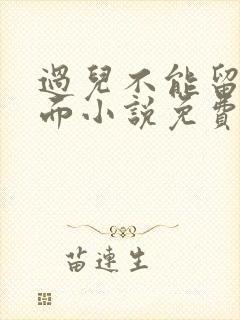 過兒不能留
而小說免費
苗連生